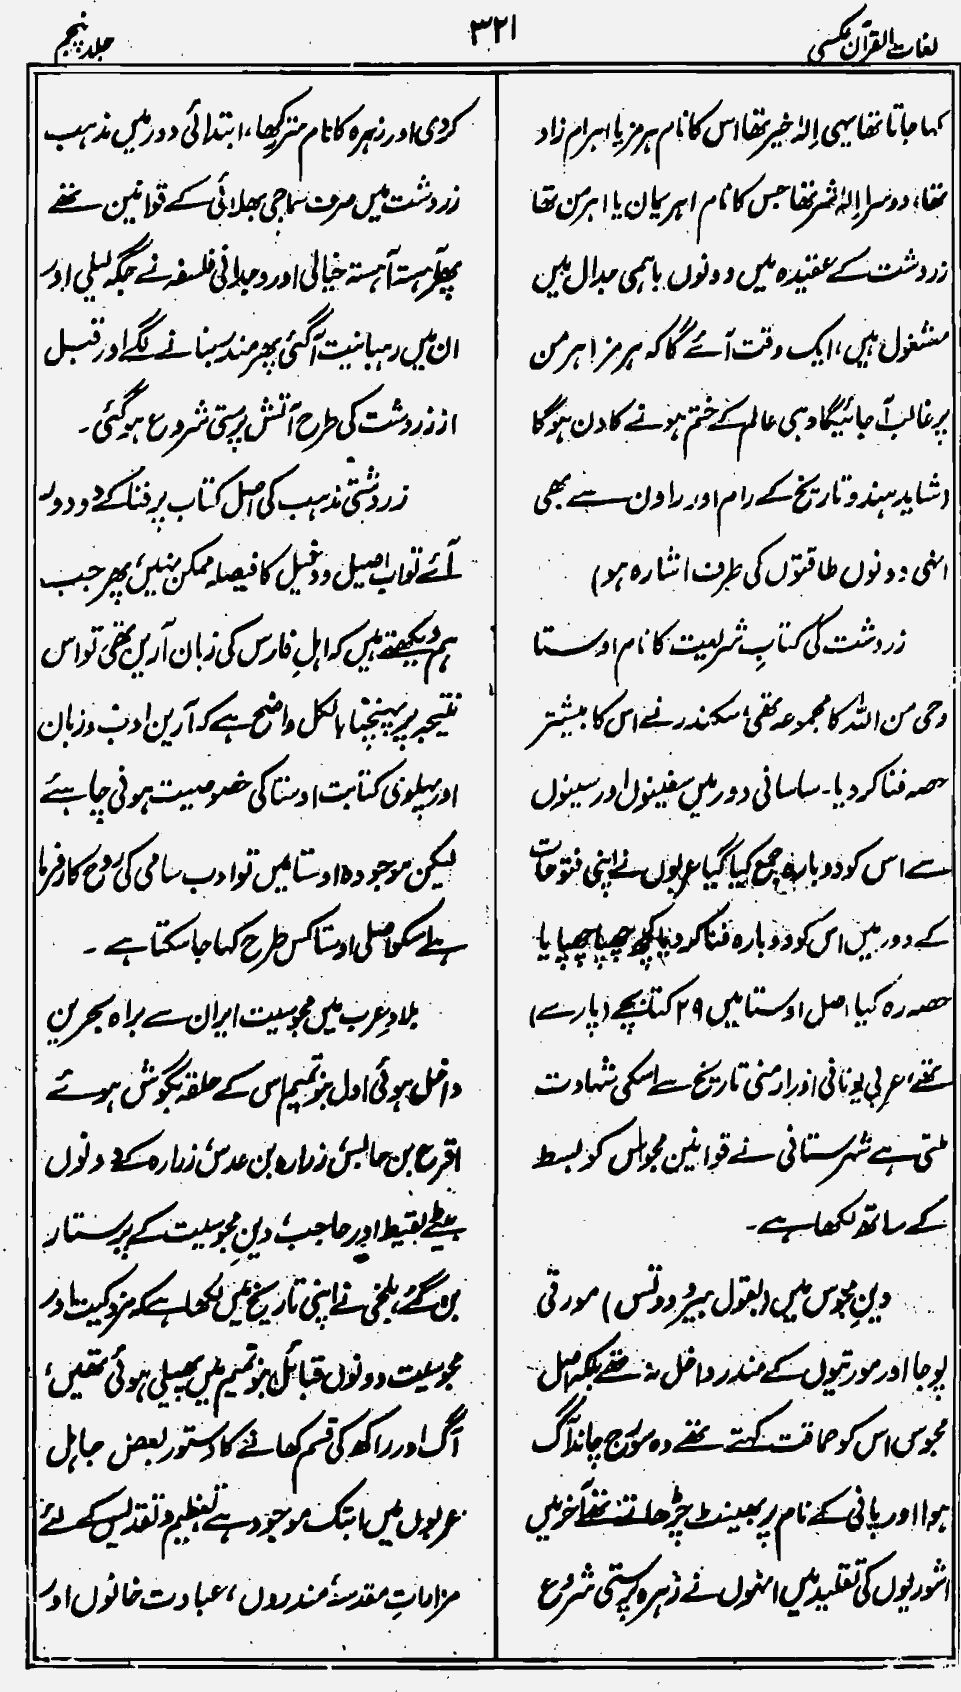 لغات القرآن عکسی
۳۲۱
جلد پنجم
کہا جاتا تھا یہی الٰہ خیر تھا اس کا نام ہرمز یا اہرام زاد
تھا، دوسرا الٰہ شر تھا جس کا نام اہریمان یا اہرمن تھا
زردشت کے عقیدہ میں دونوں باہمی جدال میں
مشغول ہیں، ایک وقت آئے گا کہ ہرمز اہرمن
پر غالب آجائیگا وہی عالم کے ختم ہونے کا دن ہوگا
(شاید ہندو تاریخ کے رام اور راون سے بھی
انہی دونوں طاقتوں کی طرف اشارہ ہو)
زردشت کی کتابِ شریعیت کا نام اوستا
وحی من اللہ کا مجموعہ تھی، سکندر نے اس کا بیشتر
حصہ فنا کر دیا۔ ساسانی دور میں سفینوں اور سینوں
سے اس کو دوبارہ جمع کیا گیا عربوں نے اپنی فتوحات
کے دور میں اس کو دوبارہ فنا کر دیا کچھ چھپا چھپایا
حصہ رہ گیا، اصل اوستا میں ۲۹ کتابچے (پارے)
تھے، عربی یونانی اور ارمنی تاریخ سے اسکی شہادت
ملتی ہے شہرستانی نے قوانین مجوس کو بسط
کے ساتھ لکھا ہے۔
دینِ مجوس میں (بقول ہیرودوتس) مورتی
پوجا اور مورتیوں کے مندر داخل نہ تھے بلکہ اصل
مجوس اس کو حماقت کہتے تھے وہ سورج چاند آگ
ہوا اور پانی کے نام پر بھینٹ چڑھاتے تھے آخر میں
اشوریوں کی تقلید میں انہوں نے زہرہ پرستی شروع
کردی اور زہرہ کا نام متر رکھا، ابتدائی دور میں مذہب
زردشت میں صرف سماجی بھلائی کے قوانین تھے
پھر آہستہ آہستہ خیالی اور وجدانی فلسفہ نے جگہ لیلی اور
ان میں رہبانیت آگئی پھر مندر بنانے لگے اور قبل
از زردشت کی طرح آتش پرستی شروع ہوگئی۔
زردشتی مذہب کی اصل کتاب پر فنا کے دو دور
آئے تو اب اصیل و دخیل کا فیصلہ ممکن نہیں، پھر جب
ہم دیکھتے ہیں کہ اہلِ فارس کی زبان آرین تھی تو اس
نتیجہ پر پہنچنا بالکل واضح ہے کہ آرین ادب و زبان
اور پہلوی کتابت اوستا کی خصوصیت ہونی چاہئے
لیکن موجودہ اوستا میں تو ادب سامی کی روح کارفرما
ہے اسکو اصلی اوستا کس طرح کہا جا سکتا ہے ۔
بلادِ عرب میں مجوسیت ایران سے براہ بحرین
داخل ہوئی اول بنو تمیم اس کے حلقہ بگوش ہوئے
اقرع بن حابس، زرارہ بن عدس، زرارہ کے دونوں
بیٹے لقیط اور حاجب، دینِ مجوسیت کے پرستار
بن گئے، بلخی نے اپنی تاریخ میں لکھا ہے کہ مزدکیت اور
مجوسیت دونوں قبائل بنو تمیم میں پھیلی ہوئی تھیں،
آگ اور راکھ کی قسم کھانے کا دستور بعض جاہل
عربوں میں ابتک موجود ہے تعظیم و تقدیس کے لئے
مزاراتِ مقدسہ، مندروں، عبادت خانوں اور